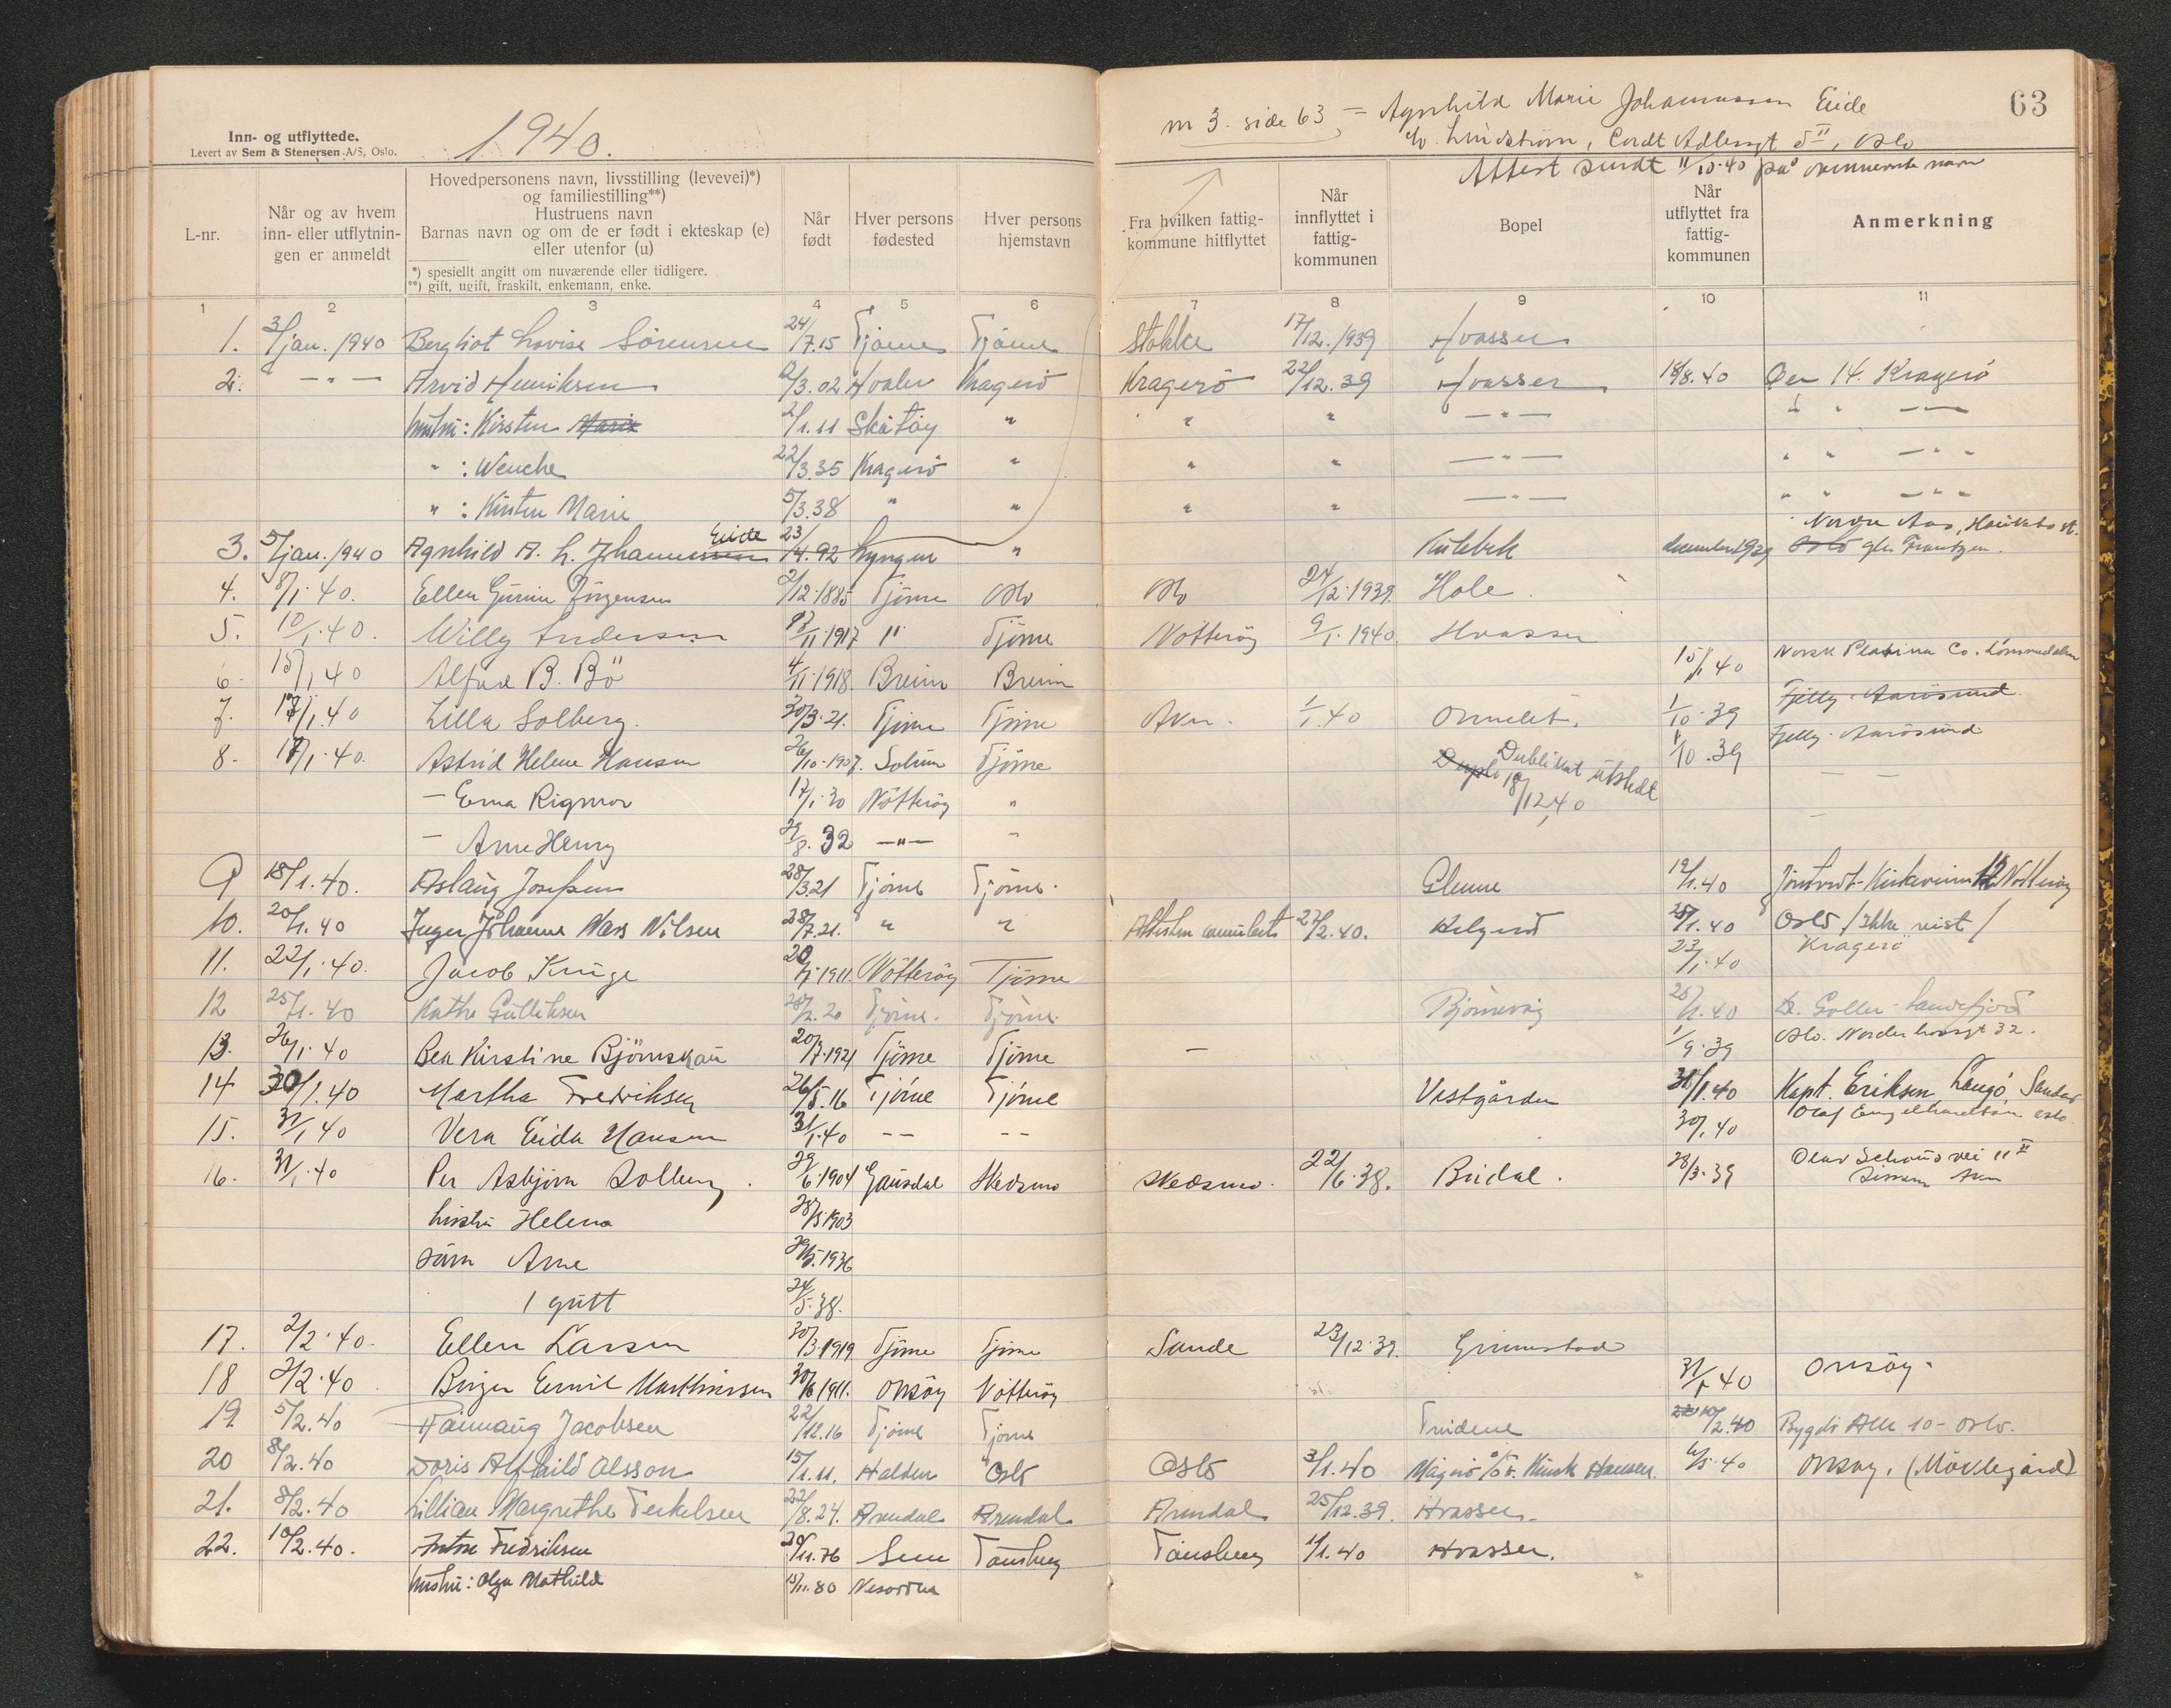 Inn- og utflyttede.
Levert av Sem & Stenersen A/S, Oslo.
1940.
nr 3. side 63 = Agnhild Marie Johannessen Eide
63
c/o. Lindstrøm, Cordt Adlersgt 5 II, Oslo
Attest sendt 11/10.40 på navn
L-nr.
Når og av hvem inn- eller utflytnin-gen er anmeldt
Hovedpersonens navn, livsstilling (levevei)*)
og familiestilling**)
Hustruens navn
Barnas navn og om de er født i ekteskap (e)
eller utenfor (u)
*) spesiellt angitt om nuværende eller tidligere.
**) gift, ugift, fraskilt, enkemann, enke.
Når født
Hver persons fødested
Hver persons hjemstavn
Fra hvilken fattig-kommune hitflyttet
Når innflyttet i fattig-kommunen
Bopel
Når utflyttet fra fattig-kommunen
Anmerkning
1 2 3 4 5 6 7 8 9 10 11
1. 3/jan. 1940 Bergliot Lovise Sörensen 24/7.15 Tjöme Tjöme Stokke 17/12.1939 Hvasser
2. " — " — Arvid Henriksen /3.02 Hvaler Kragerö Kragerö 22/12.39 Hvasser 18/8.40 14. Kragerö
hustru: Kirsten Marie 2/1.11 Skåtöy " " " — " — " " —
" : Wenche 22/3.35 Kragerö " " " — " — " " — " "
" : Kirsten Marie 5/3.38 " " " " — " — " " — " "
Nordre Aas, Hauketo st.
3. 5/jan. 1940 Agnhild A. L. Johannessen Eide 23/4.92 Lyngør " Kulebek december 1939 Oslo Frantzen.
4. 8/1.40. Ellen Gurine Jörgensen 2/12.1885 Tjöme Oslo Oslo 24/12.1939. Hole.
5. 10/1.40. Willy Andersen 13/11.1917 " Tjöme Nötteröy 9/1.1940. Hvasser
6. 15/1 40 Alfred B. Bö 4/11.1918. Breim Breim 15/1 40 Norsk Platina Co. Lommedalen
7. 17/1.40 Lilla Solberg. 30/3.21. Tjöme Tjöme Aker. 1/1.40 Ormelet. 1/10.39 Fjelly. Aarösund.
8. 17/1.40. Astrid Helene Hansen 26/10.1907. Solum Tjöme Dupli Dublikat utstedt 18/12.40 1/10.39 Fjelly. Aarösund
— Erna Rigmor 17/1.30 Nötteröy " — —
— Arne Henry 29/8.32 — " — " —
9 18/1.40. Aslaug Josefsen 28/3.21 Tjöme Tjöme. Glenne 19/1.40 Kirkeveien 12. Nötteröy
10. 20/1.40 Inger Johanne Nilsen 28/7.21. " " Attesten annulert 27/2.40. Helgerød 25/1.40 Oslo /Ikke reist/
11. 22/1.40. Jacob Kruge 20/1.1911. Nötteröy Tjöme 23/1.40 Kragerö
12 25/1.40 Kathe Gulliksen 28/2.20 Tjöme. Tjöme. Bjørnevåg 25/1.40 Sandefjord
13. 26/1.40 Bea Kirstine Björnskau 20/7.1921 Tjöme Tjöme — 1/9.39 Oslo. Norderhovsgt 32.
14 30/1.40 Martha Fredriksen 26/5.16 Tjöme Tjöme Vestgården 31/1.40 Kapt. Eriksen Langö, Sandar
15. 31/1 40 Vera Eida Hansen 31/1.40 — — — — 30/1.40 Olaf Engelhardtsen Oslo.
16. 31/1.40 Per Asbjörn Solberg. 29/6.1904 Gausdal Skedsmo Skedsmo. 22/6.38. Budal. 28/3.39 Olav Schous vei 11 II
Sinsen Aker
hustru Helena 28/5.1903
sönn Arne 29/5.1936
1 gutt 24/5.38.
17. 2/2.40. Ellen Larsen 30/3.1919 Tjöme Tjöme Sande 23/12.39. Grimestad
18 2/2.40. Birger Eemil Marthinsen 30/6.1911. Onsöy Nötteröy 31/1 40 Onsöy.
19 5/2.40 Jacobsen 22/12.16 Tjöme Tjöme Treidene 22 10/2.40 Bygdö Alle 10 - Oslo.
20 8/2.40 Doris Alfhild Olsson 15/1.11. Halden Oslo Oslo 3/1.40 Magerö c/o Hansen. 6/5.40 Onsøy. (Möklegård)
21. 8/2.40 Lillian Margrethe Terkelsen 22/8.24. Arendal Arendal Arendal 25/12.39. Hvasser.
22. 10/2.40. Anton Fredriksen 20/11.76 Sem Tönsberg Tönsberg 1/1.40 Hvasser.
hustru: Olga Mathilde 15/11.80 Nesodden